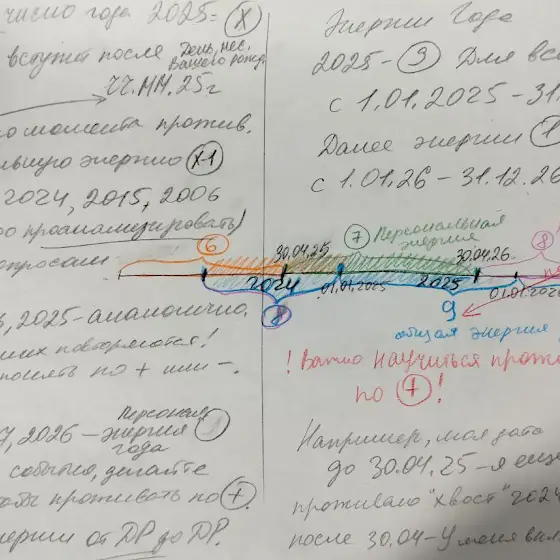 число года 2025= X
вступит после День, мес. Вашего рожд.
ЧЧ.ММ.25г
о момента прожив.
льшую энергию X-1
2024, 2015, 2006
о проанализировать)
опросам
6
, 2025-аналогично.
них повторяются!
понять по + или -.
7, 2026 - Персонал. энергия года
события, делайте
проживать по +.
нергии от ДР до ДР.
Энергии Года
2025 - 9 Для вс
с 1.01.2025 - 31.
Далее энергии 1
с 1.01.26 - 31.12.26
7 Персональная энергия
8
30.04.25
30.04.26
2024
01.01.2025
2025
01.01.202
8
9
общая энергия
! Важно научиться прожи
по + !
Например, моя дата
до 30.04.25 - я еще
проживаю "хвост" 2024
после 30.04 - у меня вкл